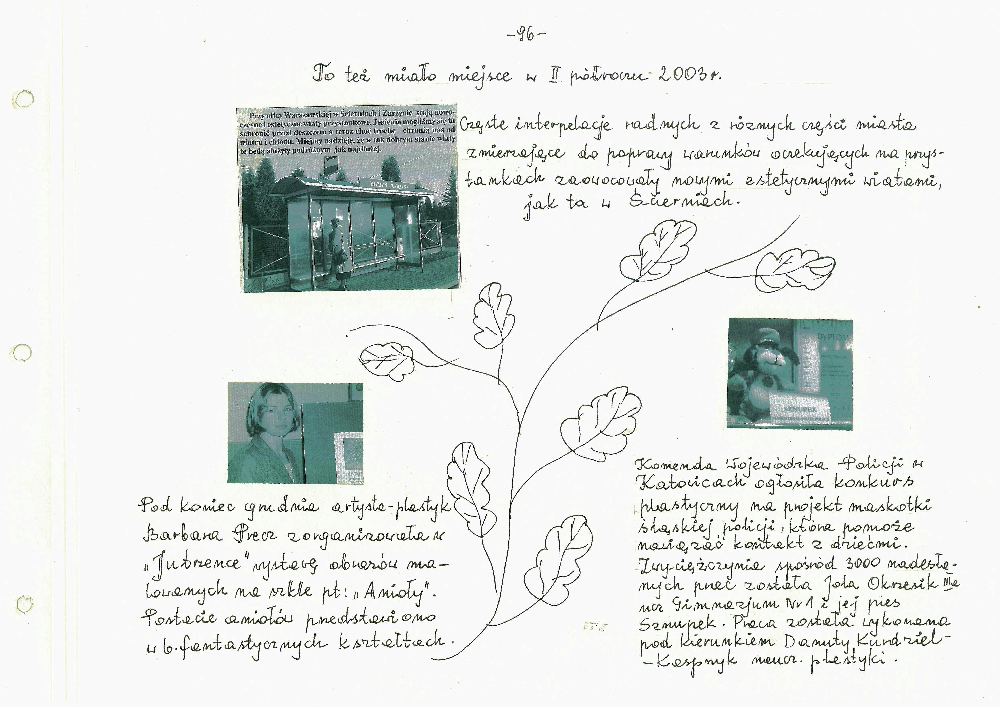 -96-
To też miało miejsce w II półroczu 2003r.
Przy ulicy Warszawskiej w Ścierniach i Zarzynie stoją nowo-
Częste interpelacje radnych z różnych części miasta
zmierzające do poprawy warunków oczekujących na przys-
tankach zaowocowały nowymi estetycznymi wiatami,
jak ta w Ścierniach.
Pod koniec grudnia artysta-plastyk
Barbara Precz zorganizowała w
"Jutrzence" wystawę obrazów ma-
lowanych na szkle pt: "Anioły".
Postacie aniołów przedstawiono
w b. fantastycznych kształtach.
Komenda Wojewódzka Policji w
Katowicach ogłosiła konkurs
plastyczny na projekt maskotki
śląskiej policji, która pomoże
nawiązać kontakt z dziećmi.
Zwyciężczynią spośród 3000 nadesła-
nych prac została Jola Okrzesik
ucz Gimnazjum Nr 1 i jej pies
Sznupek. Praca została wykonana
pod kierunkiem Danuty Kundziel-
-Kasprzyk naucz. plastyki.